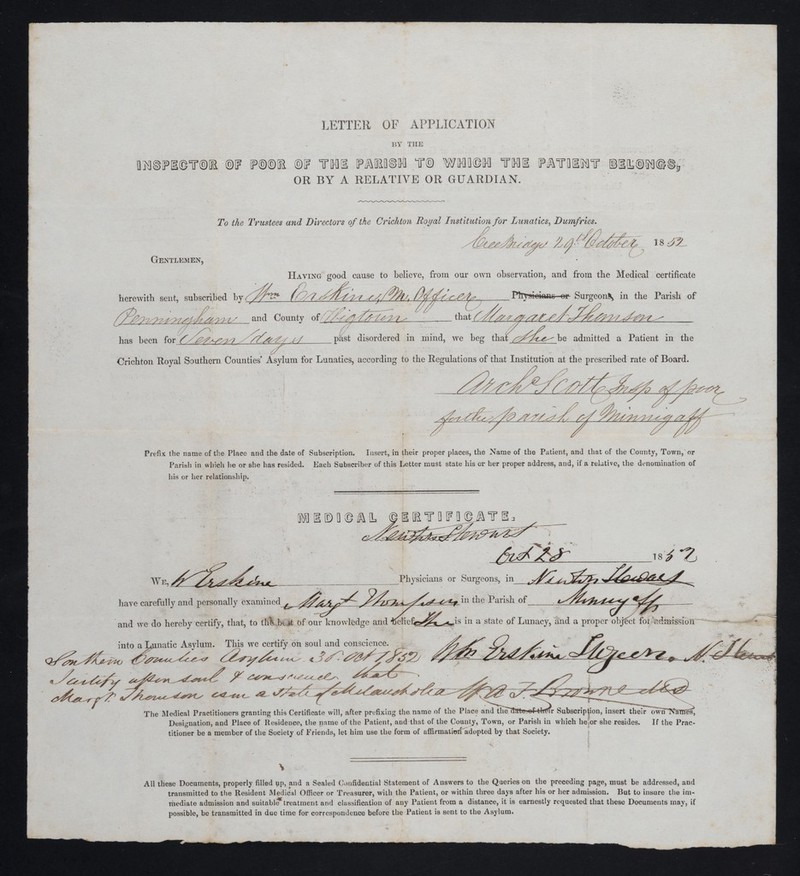 LETTER OF APPLICATION
BY THE
INSPECTOR OF POOR OF THE PARISH TO WHICH THE PATIENT BELONGS,
OR BY A RELATIVE OR GUARDIAN.
To the Trustees and Directors of the Crichton Royal Institution for Lunatics, Dumfries.
Creebridge 29th October 1852
GENTLEMEN,
HAVING good cause to believe, from our own observation, and from the Medical certificate
herewith sent, subscribed by Wm Erskine, M. Officer Physicians or Surgeons, in the Parish of
Penningham and County of Wigtown that Margaret Thomson
has been for Seven days past disordered in mind, we beg that She be admitted a Patient in the
Crichton Royal Southern Counties' Asylum for Lunatics, according to the Regulations of that Institution at the prescribed rate of Board.
Archd Scott Insp of poor
for the parish of Minnigaff
Prefix the name of the Place and the date of Subscription. Insert, in their proper places, the Name of the Patient, and that of the County, Town, or
Parish in which he or she has resided. Each Subscriber of this Letter must state his or her proper address, and, if a relative, the denomination of
his or her relationship.
MEDICAL CERTIFICATE.
Newton Stewart
Oct 28 1852
WE, W Erskine Physicians or Surgeons, in Newton Stewart
have carefully and personally examined Margt Thompson in the Parish of Minnigaff
and we do hereby certify, that, to the best of our knowledge and belief She is in a state of Lunacy, and a proper object for admission
into a Lunatic Asylum. This we certify on soul and conscience.
Wm Erskine Surgeon N. Stewart
Southern Counties Asylum 30 Oct 1852
I certify upon soul & conscience that
Margt Thomson is in a state of Melancholia W A F Browne MD
The Medical Practitioners granting this Certificate will, after prefixing the name of the Place and the date of their Subscription, insert their own Names,
Designation, and Place of Residence, the name of the Patient, and that of the County, Town, or Parish in which he or she resides. If the Prac-
titioner be a member of the Society of Friends, let him use the form of affirmation adopted by that Society.
All these Documents, properly filled up, and a Sealed Confidential Statement of Answers to the Queries on the preceding page, must be addressed, and
transmitted to the Resident Medical Officer or Treasurer, with the Patient, or within three days after his or her admission. But to insure the im-
mediate admission and suitable treatment and classification of any Patient from a distance, it is earnestly requested that these Documents may, if
possible, be transmitted in due time for correspondence before the Patient is sent to the Asylum.